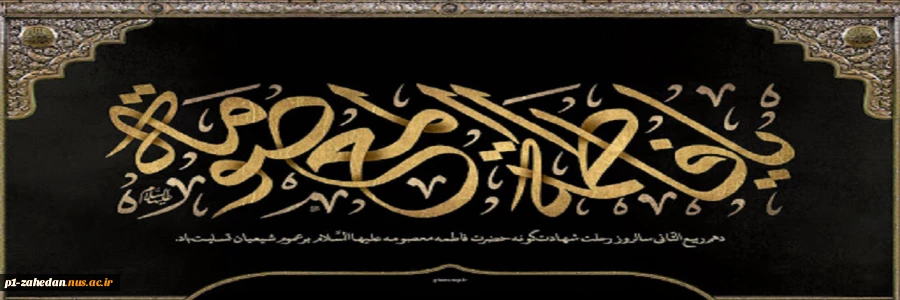 یا فاطمة المعصومة
علیهاالسلام
دهم ربیع الثانی سالروز رحلت شهادت‌گونه حضرت فاطمه معصومه علیها السَّلام بر عموم شیعیان تسلیت باد.
p1-zahedan.nus.ac.ir